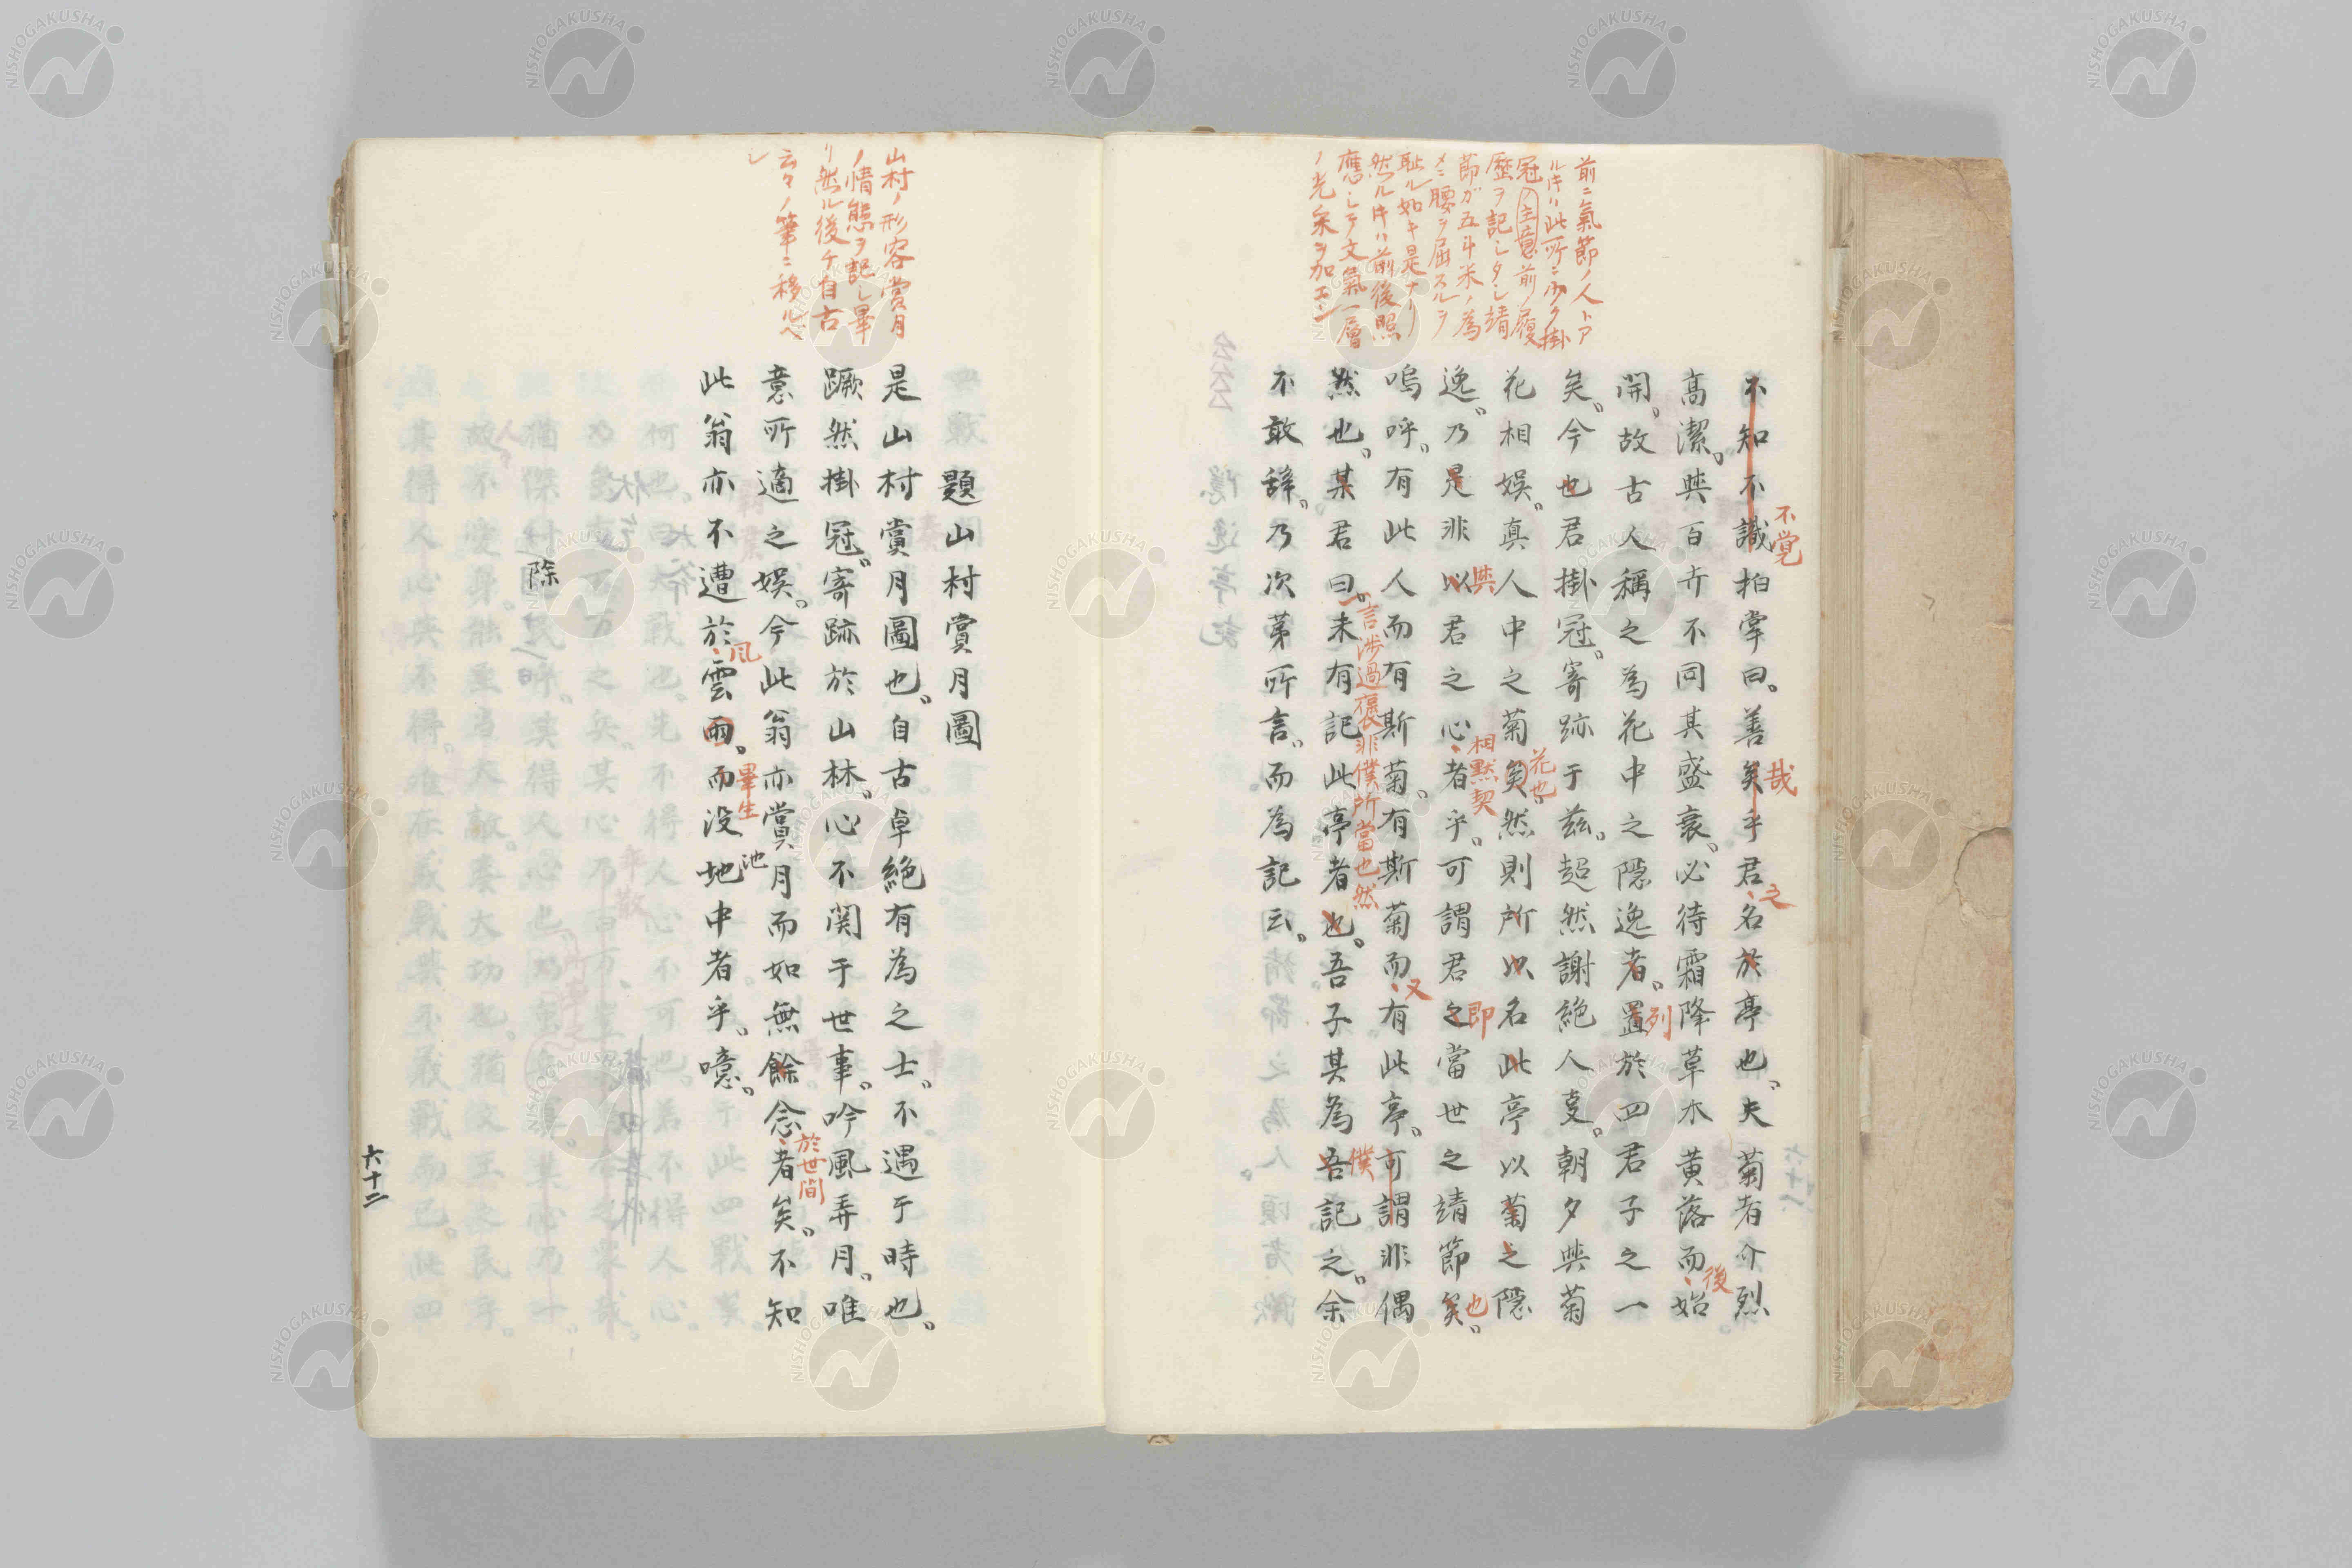 前ニ氣節ノ人トア
ル片ハ此所ニ少ク掛
冠ノ主意前ノ履
歴ヲ記シタシ靖
節ガ五斗米ノ為
メニ腰ヲ屈スルヲ
恥ル如キ是ナリ
然ル片ハ前後照
應シテ文氣一層
ノ光采ヲ加エン
不知不識拍掌曰。善矣乎君名於亭也。夫菊者介烈
不覚
哉
之
高潔。與百卉不同其盛衰。必待霜降草木黄落而始
後
開。故古人稱之為花中之隠逸者。置於四君子之一
列
矣。今也君掛冠。寄跡于茲。超然謝絶人㕝。朝夕與菊
花相娯。真人中之菊矣。然則所以名此亭以菊之隠
花也
逸。乃是非以君之心者乎。可謂君之當世之靖節矣。
與
相黙契
即
也
嗚呼。有此人而有斯菊。有斯菊而有此亭。可謂非偶
又
然也。某君曰。未有記此亭者也。吾子其為吾記之。余
言渉過褒非僕所當也然
僕
不敢辞。乃次第所言。而為記云。
山村ノ形容賞月
ノ情態ヲ記シ畢
リ然ル後チ自古
云々ノ筆ニ移ルベ
シ
題山村賞月圖
是山村賞月圖也。自古卓絶有為之士。不遇于時也。
蹶然掛冠。寄跡於山林。心不関于世事。吟風弄月。唯
意所適之娯。今此翁亦賞月而如無餘念者矣。不知
於世間
此翁亦不遭於雲雨。而没地中者乎。噫。
風
畢生
池
除
六十二
NISHOGAKUSHA